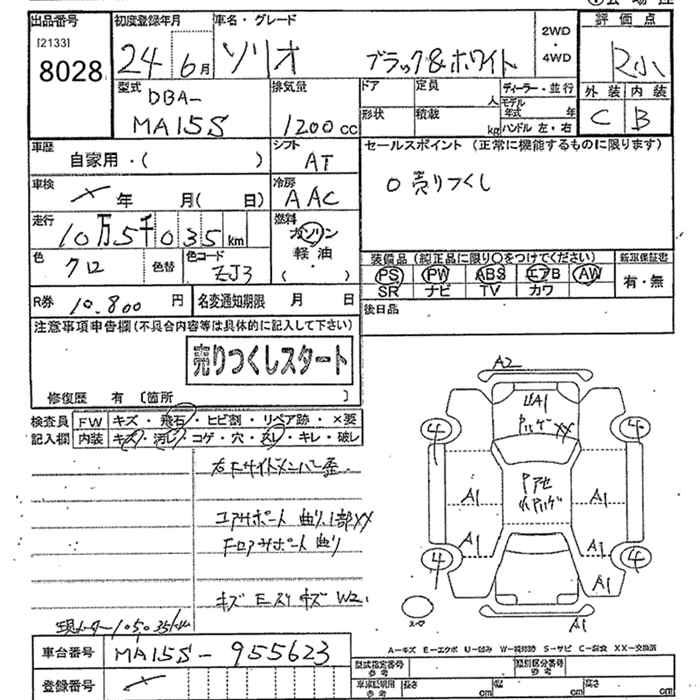 出品番号 初度登録年月 車名・グレード 評価点
[2133]
8028 24年6月 ソリオ ブラック&ホワイト 2WD・4WD R小
外装 内装
C B
型式 DBA-
MA15S
排気量 1200cc
ドア 定員 人 ディーラー・並行
形状 積載 kg モデル年式 年
ハンドル 左・右
車歴 自家用・( ) シフト AT
セールスポイント (正常に機能するものに限ります)
○売りつくし
車検 年 月( 日) 冷房 AAC
走行 10万5千035km
燃料 ガソリン 軽油 ( ・ )
色 クロ 色替 色コード ZJ3
装備品(純正品に限り○をつけてください) 新車保証書
PS PW ABS エアB AW 有・無
SR ナビ TV カワ
R券 10,800円 名変通知期限 月 日
後日品
注意事項申告欄(不具合内容等は具体的に記入して下さい)
売りつくしスタート
修復歴 有 〔箇所 〕
検査員 FW キズ・飛石・ヒビ割・リペア跡・×要
記入欄 内装 キズ・汚レ・コゲ・穴・スレ・キレ・破レ
右Fサイドメンバー歪
コアサポート曲り、1部XX
Fロアサポート曲り
A2
A1
4 4
A1 A1
A1 A1
4 4
A1
A1
スペア
現メーター105,035km
A=キズ E=エクボ U=凹み W=補修跡 S=サビ C=腐食 XX=交換済
車台番号 MA15S-955623
型式指定番号 参考 類別区分番号 参考
登録番号
車庫証明用 参考 長さ cm 幅 cm 高さ cm